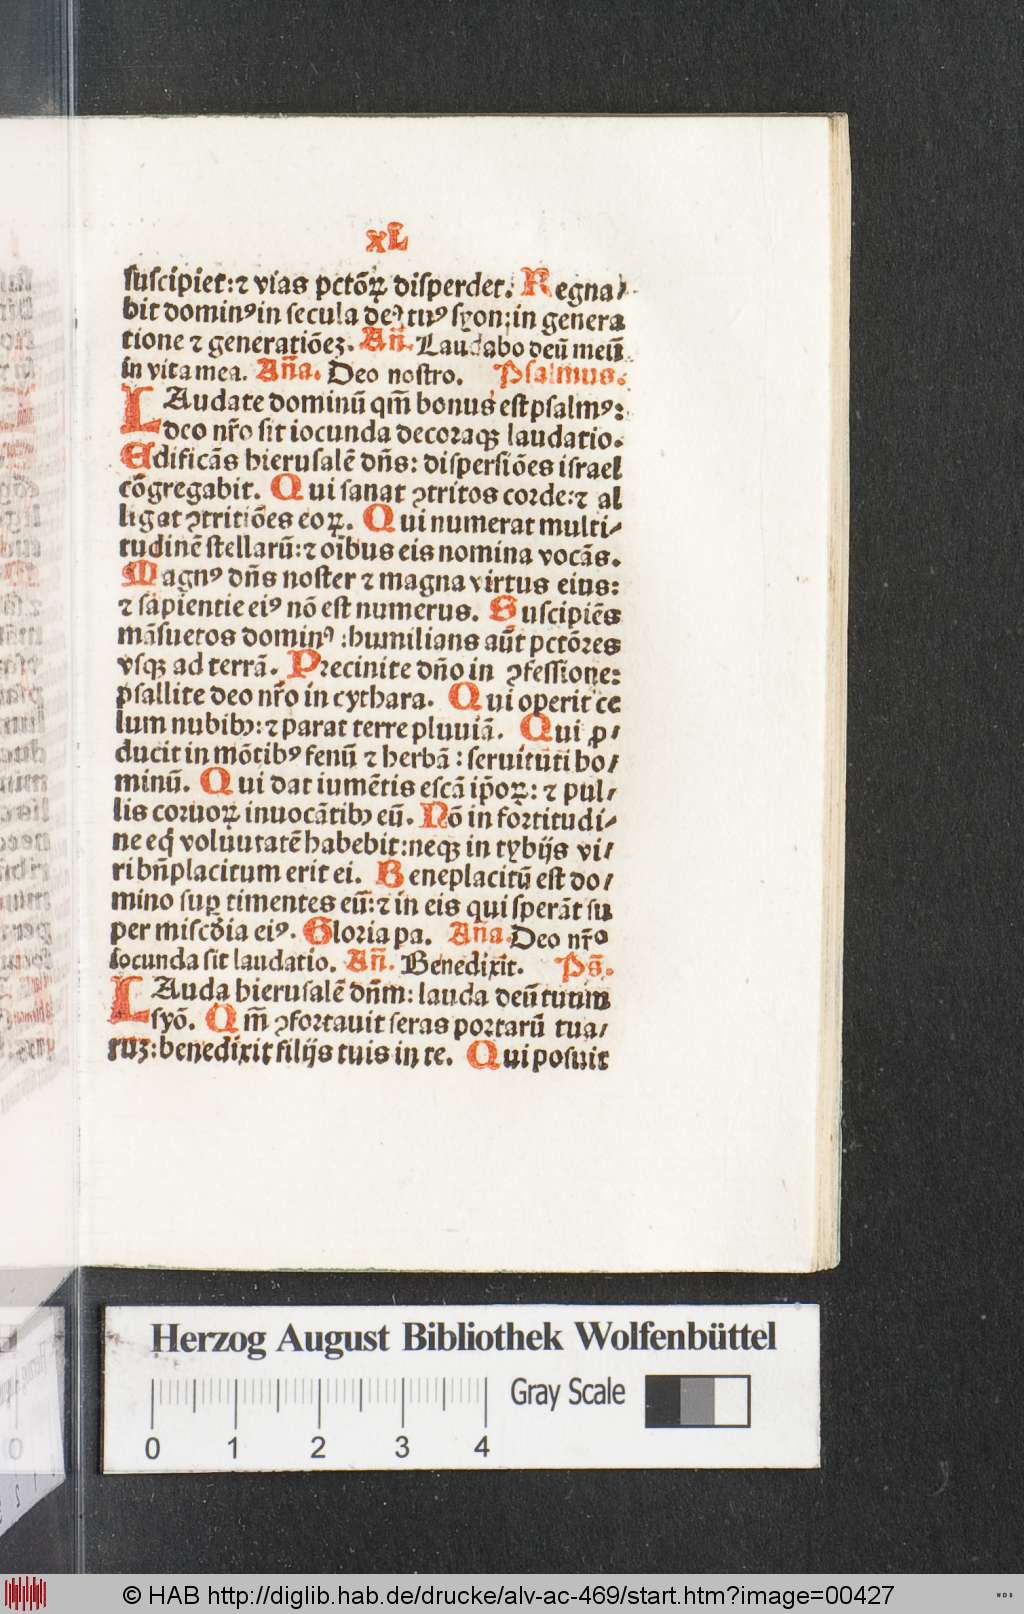 xL
suscipiet:⁊ vias pctõꝝ disperdet. Regna/
bit dominꝰ in secula deꝰ tuꝰ syon:in genera
tione ⁊ generatiõeʒ. Añ. Laudabo deũ meũ
in vita mea. Aña. Deo nostro. Psalmus.
LAudate dominũ qm̃ bonus est psalmꝰ:
deo nr̃o sit iocunda decoraqꝫ laudatio.
Edificãs hierusalẽ dñs: dispersiões israel
cõgregabit. Qui sanat ꝯtritos corde:⁊ al
ligat ꝯtritiões eoꝝ. Qui numerat multi/
tudinẽ stellarũ:⁊ oĩbus eis nomina vocãs.
Magnꝰ dñs noster ⁊ magna virtus eius:
⁊ sapientie eiꝰ nõ est numerus. Suscipiẽs
mãsuetos dominꝰ :humilians aũt pctõres
vsqꝫ ad terrã. Precinite dño in ꝯfessione:
psallite deo nr̃o in cythara. Qui operit ce
lum nubibꝰ:⁊ parat terre pluuiã. Qui ꝓ/
ducit in mõtibꝰ fenũ ⁊ herbã: seruituti ho/
minũ. Qui dat iumẽtis escã ip̃oꝝ: ⁊ pul/
lis coruoꝝ inuocãtibꝰ eũ. Nõ in fortitudi/
ne eq̃ voluutatẽ habebit:neqꝫ in tybijs vi/
ri bñplacitum erit ei. Beneplacitũ est do/
mino suꝑ timentes eũ:⁊ in eis qui sperãt su
per miscďia eiꝰ. Gloria pa. Aña. Deo nr̃o
iocunda sit laudatio. Añ. Benedixit. Ps̃.
LAuda hierusalẽ dñm: lauda deũ tuum
syõ. Qm̃ ꝯfortauit seras portarũ tua/
ruʒ:benedixit filijs tuis in te. Qui posuit
Herzog August Bibliothek Wolfenbüttel
Gray Scale
0 1 2 3 4
© HAB http://diglib.hab.de/drucke/alv-ac-469/start.htm?image=00427